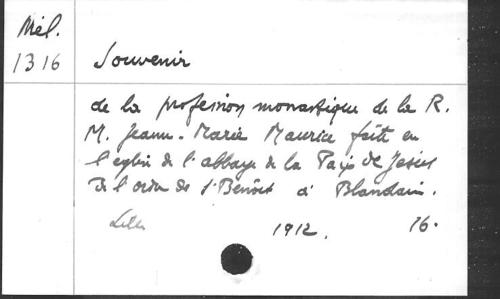 Mél.
1316
Souvenir
de la profession monastique de la R.
M. Jeanne-Marie Maurice faite en
l'église de l'abbaye de la Paix de Jésus
de l'ordre de St Benoît à Blandain.
Lille 1912. 16.